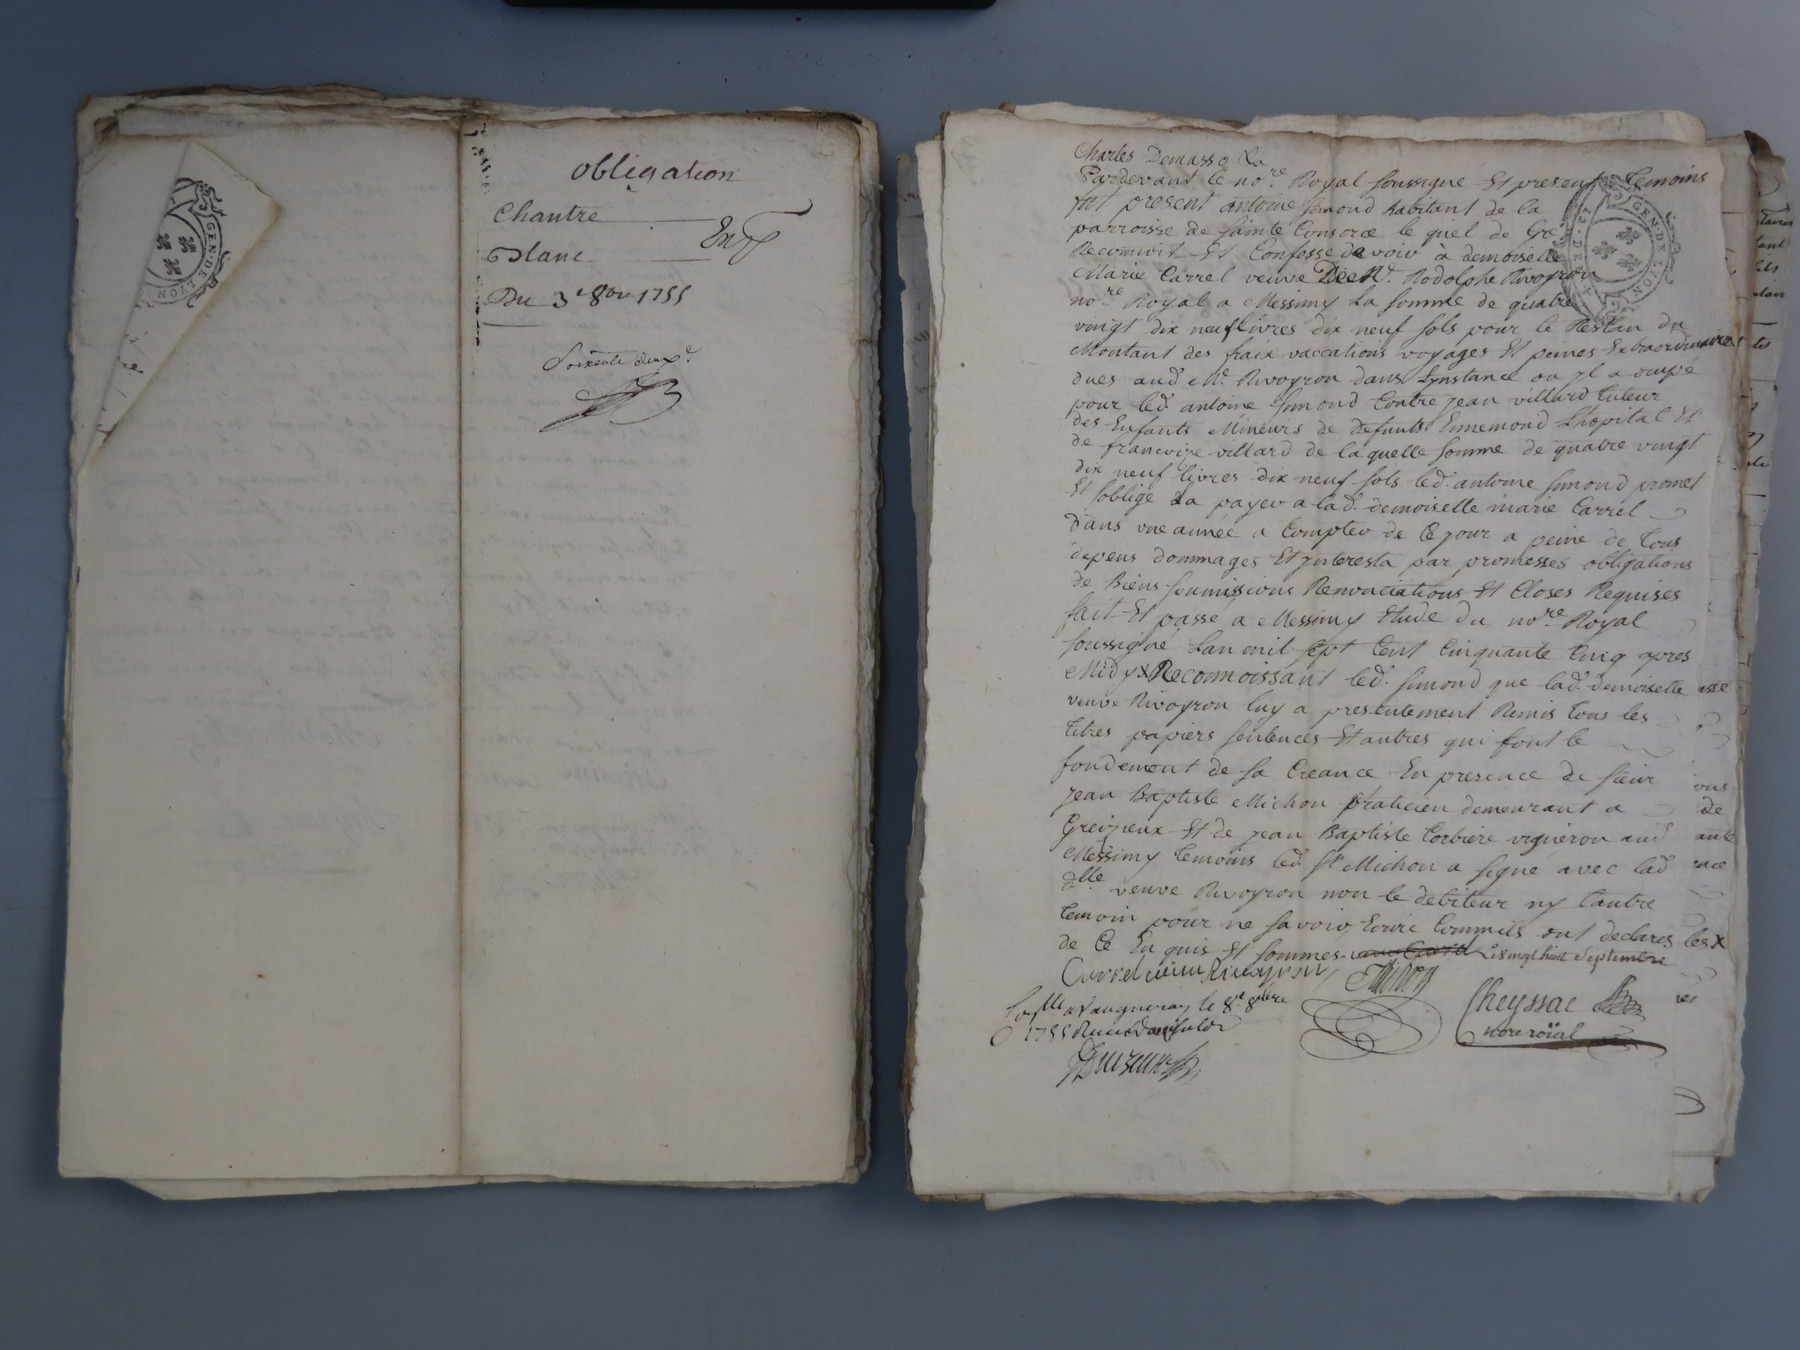 obligation
Chantre
Blanc
Du 3e 8bre 1755
Soixente deuxe.
GEN. DE LYON
Charles Demasso La
Pardevant le nore. Royal soussigné Et presents Temoins
fut present antoine Simond habitant de la
parroisse de Sainte Consorce le quel de Gré
Reconnoit Et Confesse devoir à demoiselle
Marie Carrel veuve De Me. Rodolphe Rivoyron
nore Royal a Messimy La somme de quatre
vingt dix neuf livres dix neuf sols pour le Restan du
Montant des fraix vaccations voyages Et peines Extraordinaires
dues aud Me. Rivoyron dans Lynstance ou jl a ocupé
pour led. antoine Simond Contre jean villard tuteur
des Enfants Mineurs de defunts Ennemond Lhopital Et
de francoize villard de laquelle somme de quatre vingt
dix neuf livres dix neuf sols led. antoine Simond promet
Et soblige La payer a lad. demoiselle marie Carrel
dans une année a Compter de Ce jour a peine de Tous
depens dommages Et jnterests par promesses obligations
de Biens soumissions Renonciations Et Closes Requises
fait Et passé a Messimy Etude du nore Royal
soussigné Lan mil sept Cent Cinquante Cinq apres
Midy x Reconnoissant led. Simond que lad. demoiselle
veuve Rivoyron luy a presentement Remis Tous les
titres papiers sentences Et autres qui font le
fondement de sa Creance En presence de sieur
jean Baptiste Michon praticien demeurant a
Greizieux Et de jean Baptiste Corbiere vigneron aud
Messimy temoins led. Sr Michon a signé avec lad
dlle veuve Rivoyron non le debiteur ny lautre
temoin pour ne savoir Ecrire Commils ont declarés
de Ce En quis Et sommés x Le vingt huit septembre
Carrel veuve Rivoyron
Michon
Cheyssac
nore roïal
Collé a Vaugneray le 8e 8bre
1755 Recu